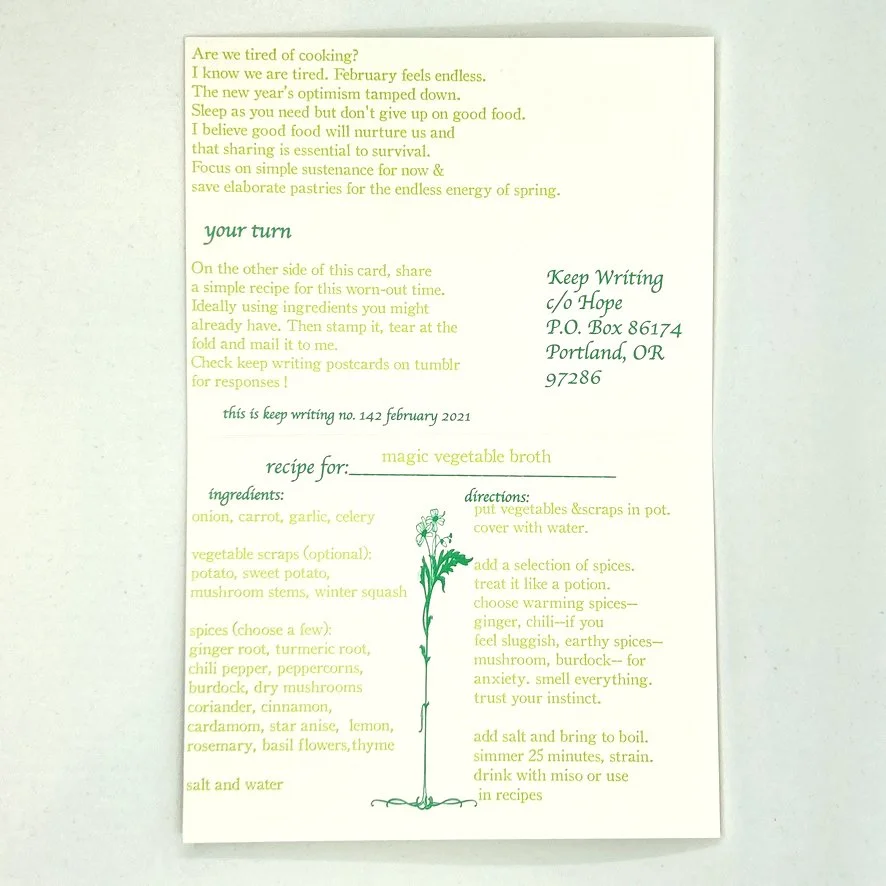 Are we tired of cooking?
I know we are tired. February feels endless.
The new year's optimism tamped down.
Sleep as you need but don't give up on good food.
I believe good food will nurture us and
that sharing is essential to survival.
Focus on simple sustenance for now &
save elaborate pastries for the endless energy of spring.
your turn
On the other side of this card, share
a simple recipe for this worn-out time.
Ideally using ingredients you might
already have. Then stamp it, tear at the
fold and mail it to me.
Check keep writing postcards on tumblr
for responses !
Keep Writing
c/o Hope
P.O. Box 86174
Portland, OR
97286
this is keep writing no. 142 february 2021
recipe for: magic vegetable broth
ingredients:
onion, carrot, garlic, celery
vegetable scraps (optional):
potato, sweet potato,
mushroom stems, winter squash
spices (choose a few):
ginger root, turmeric root,
chili pepper, peppercorns,
burdock, dry mushrooms
coriander, cinnamon,
cardamom, star anise, lemon,
rosemary, basil flowers,thyme
salt and water
directions:
put vegetables &scraps in pot.
cover with water.
add a selection of spices.
treat it like a potion.
choose warming spices—
ginger, chili—if you
feel sluggish, earthy spices—
mushroom, burdock— for
anxiety. smell everything.
trust your instinct.
add salt and bring to boil.
simmer 25 minutes, strain.
drink with miso or use
in recipes